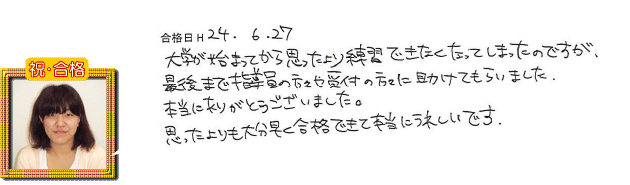 合格日 H 24. 6.27
大学が始まってから思ったより練習できなくなってしまったのですが、
最後まで指導員の方々や受付の方々に助けてもらいました.
本当にありがとうございました。
思ったよりも大分早く合格できて本当にうれしいです.
祝・合格